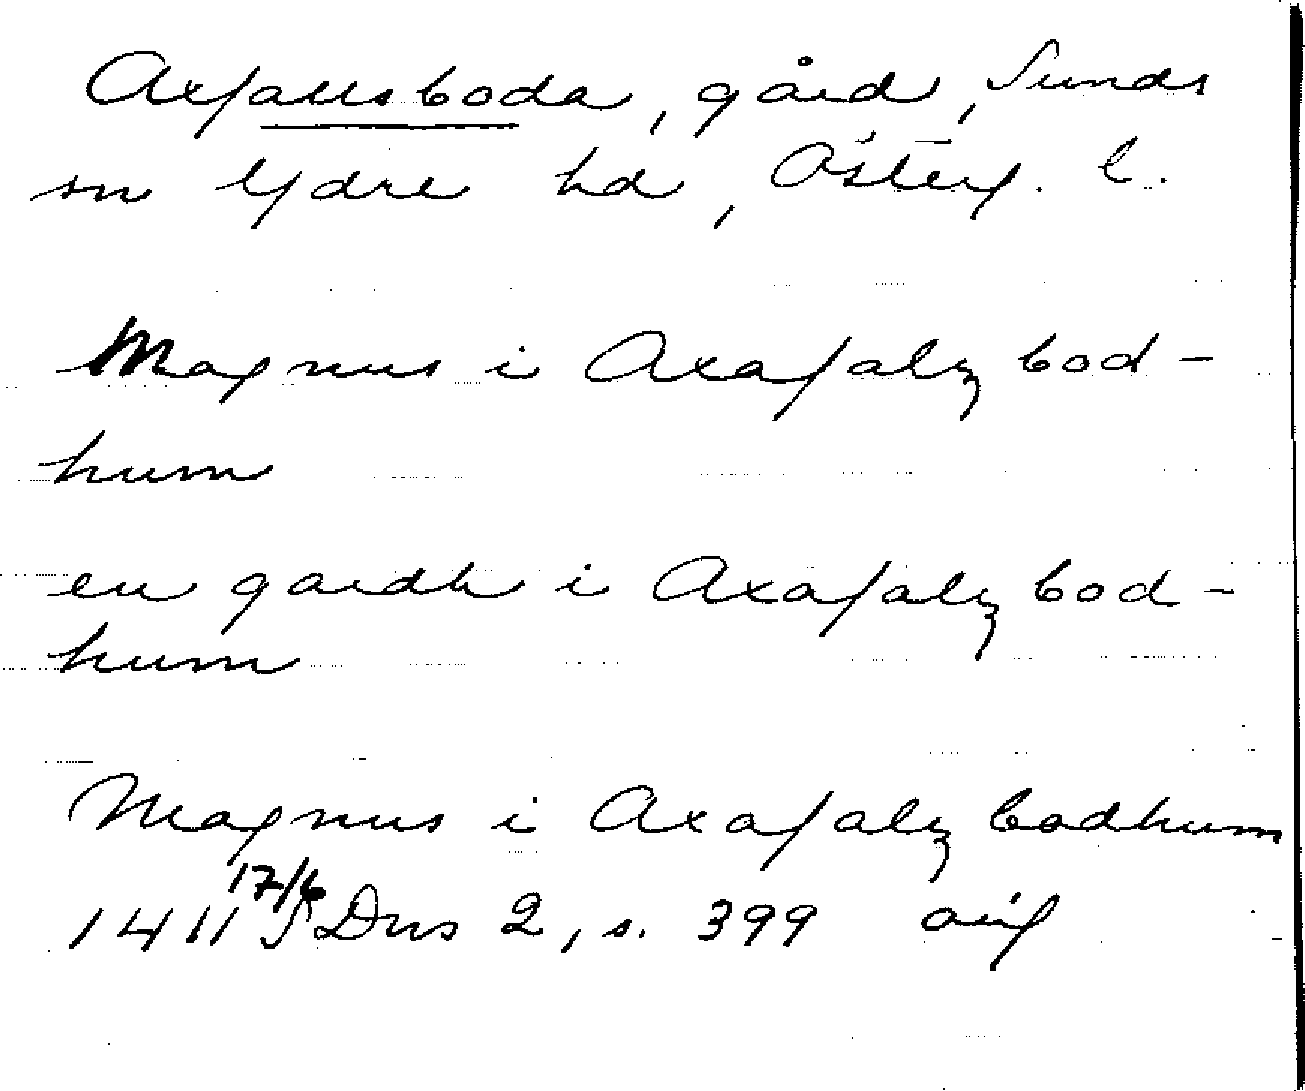 Axfallsboda, gård, Sunds
sn Ydre hd, Österg. l.
Magnus i Axafalz bod-
hum
en gardh i Axafalz bod-
hum
Magnus i Axafalz bodhum
1411 17/6 SDns 2, s. 399 orig